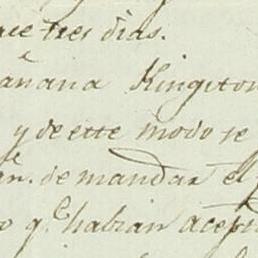 ace tres dias.
añana Kingston
y de este modo se
de mandar el
o q.e habian acept